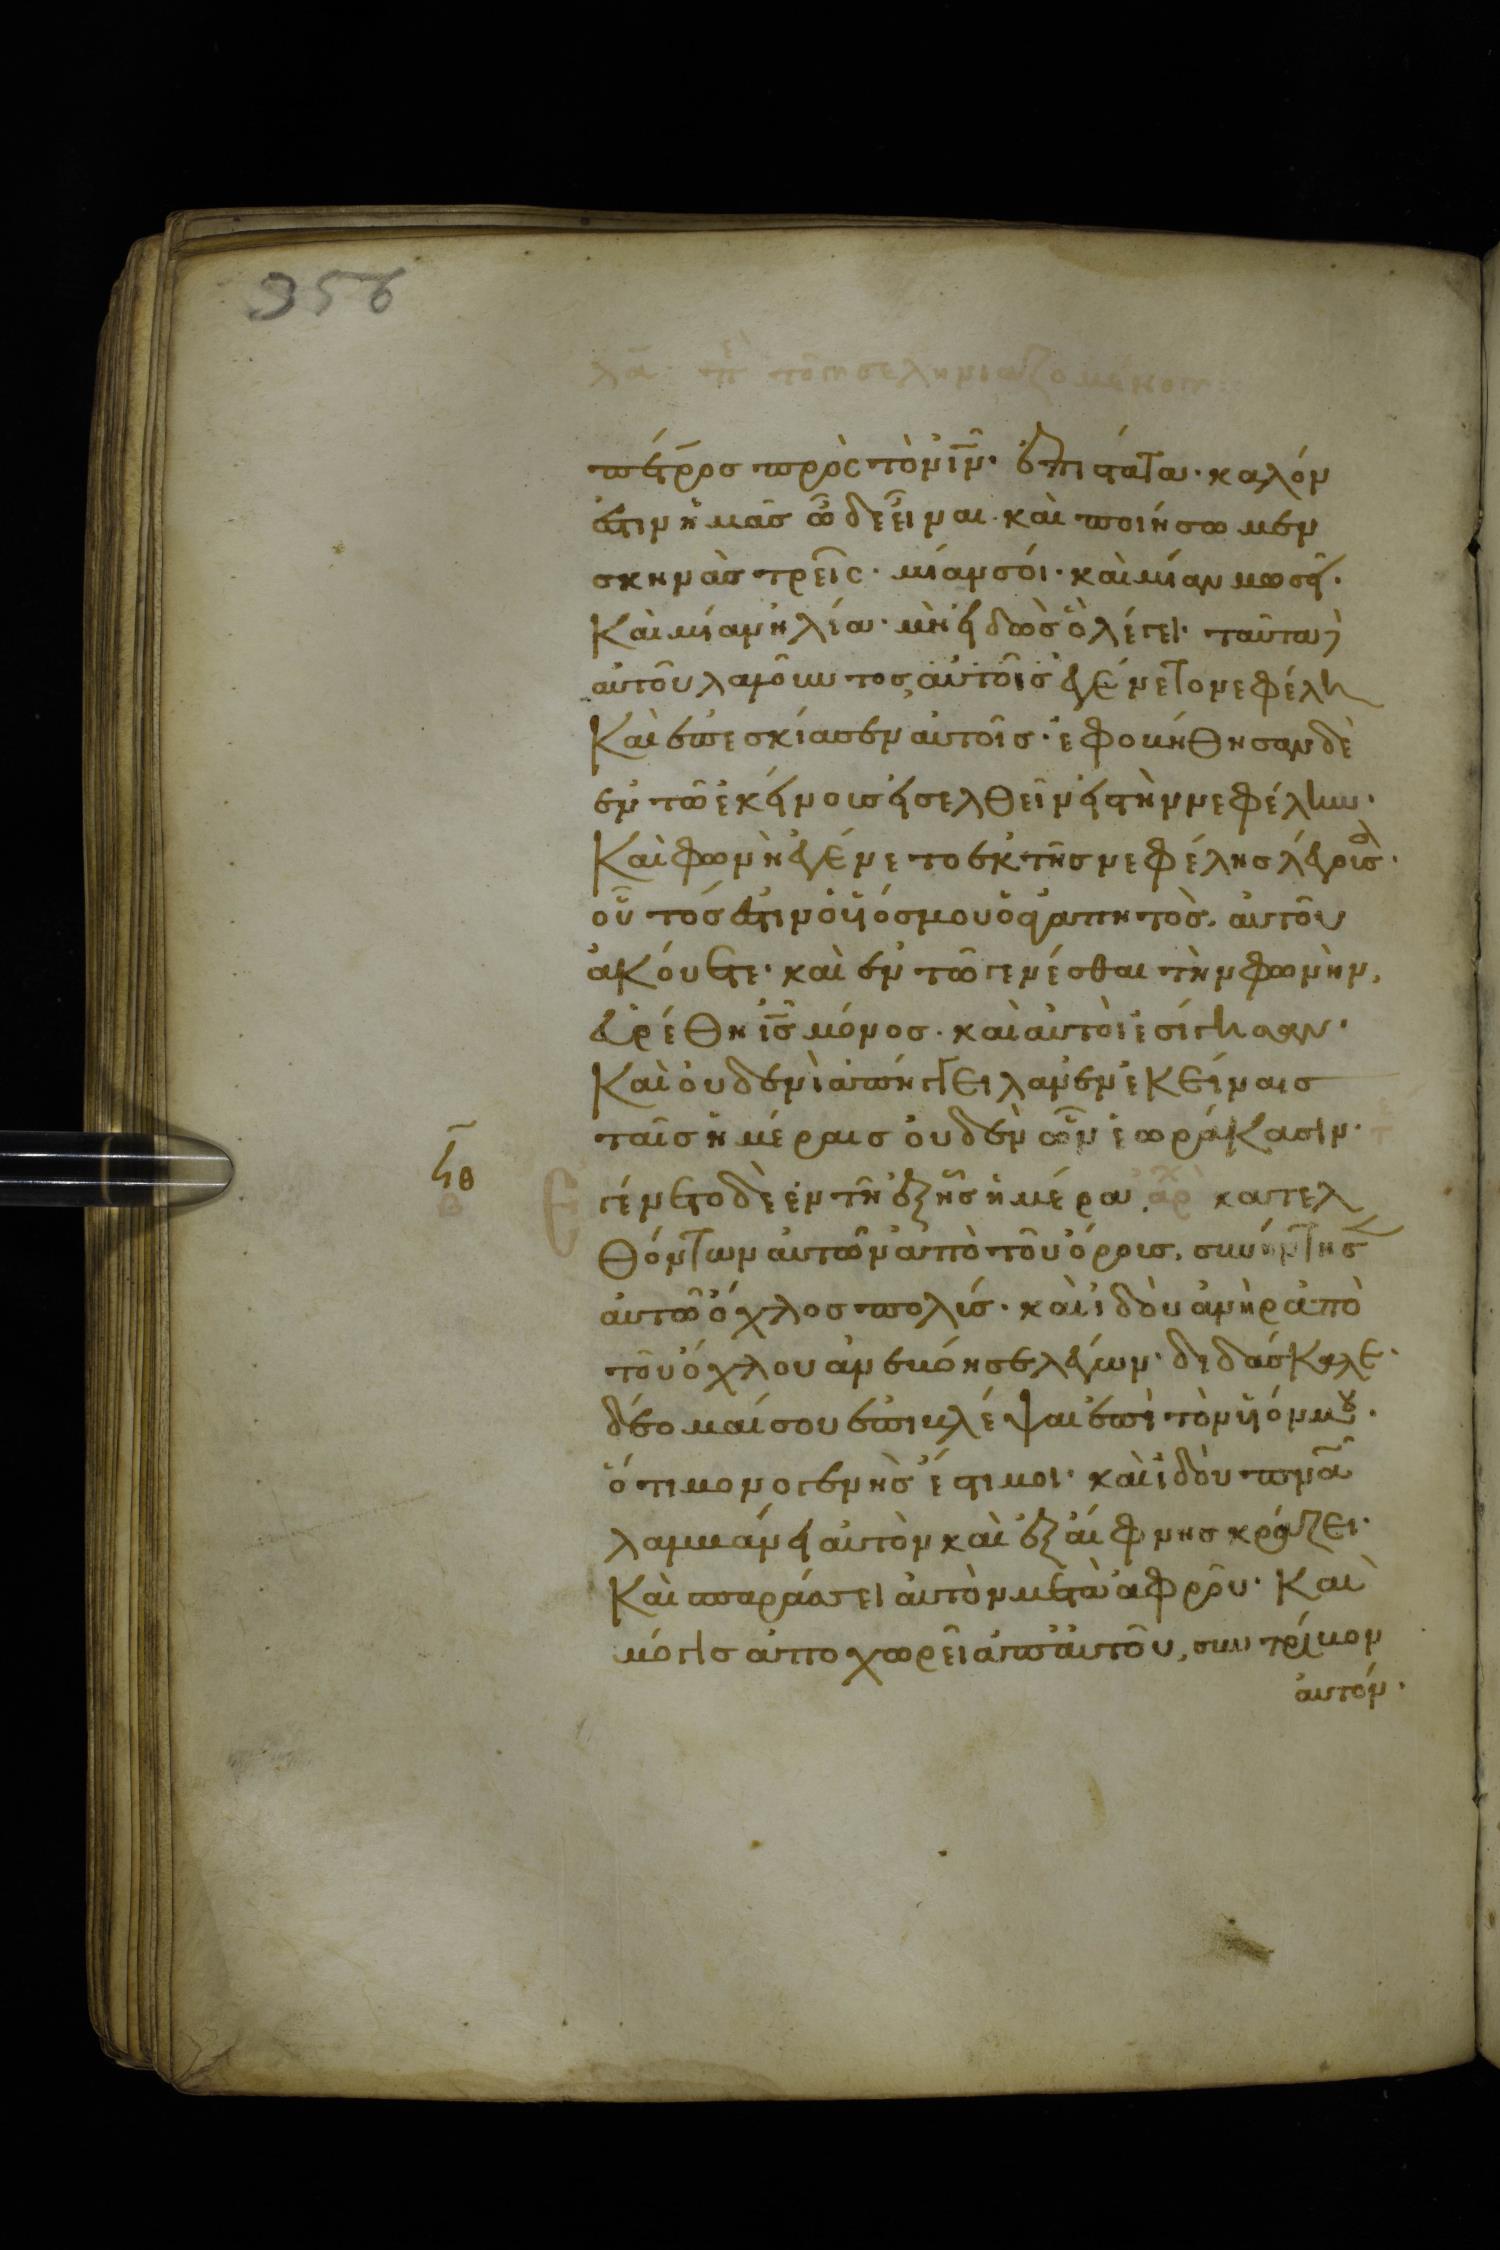 356
λα πε τοῦ σεληνιαζομένου
πέτρος πρὸς τὸν ιν· ἐπιστάτα· καλόν
ἐστιν ἡμᾶς ὧδε εἶναι· καὶ ποιήσωμεν
σκηνὰς τρεῖς· μίαν σοί· καὶ μίαν μωσεῖ·
Καὶ μίαν ἠλία· μὴ εἰδὼς ὃ λέγει· ταῦτα
αὐτοῦ λαλοῦντος αὐτοῖς ἐγένετο νεφέλη
Καὶ ἐπεσκίασεν αὐτοῖς· ἐφοβήθησαν δὲ
ἐν τῶ ἐκείνους εἰσελθεῖν εἰς τὴν νεφέλην·
Καὶ φωνὴ ἐγένετο ἐκ τῆς νεφέλης λέγουσα·
οὗτός ἐστιν ὁ υἱός μου ὁ ἀγαπητὸς, αὐτοῦ
ἀκούετε· καὶ ἐν τῶ γενέσθαι τὴν φωνὴν,
εὑρέθη ις μόνος· καὶ αὐτοὶ ἐσίγησαν·
Καὶ οὐδενὶ ἀπήγγειλαν ἐν ἐκείναις
ταῖς ἡμέραις οὐδὲν ὧν ἑωράκασιν·
Ἐγένετο δὲ ἐν τῆ ἑξῆς ἡμέρα, κατελ
θόντων αὐτῶν ἀπὸ τοῦ ὄρους, συνήντησεν
αὐτῶ ὄχλος πολύς· καὶ ἰδοὺ ἀνὴρ ἀπὸ
τοῦ ὄχλου ἀνεβόησε λέγων· διδάσκαλε·
δέομαί σου ἐπιβλέψαι ἐπὶ τὸν υἱόν μου·
ὅτι μονογενής ἐστι μοι· καὶ ἰδοὺ πνα
λαμβάνει αὐτὸν καὶ ἐξαίφνης κράζει·
Καὶ σπαράσσει αὐτὸν μετὰ ἀφροῦ· Καὶ
μόγις ἀποχωρεῖ ἀπ' αὐτοῦ, συντρίβον
αὐτόν·